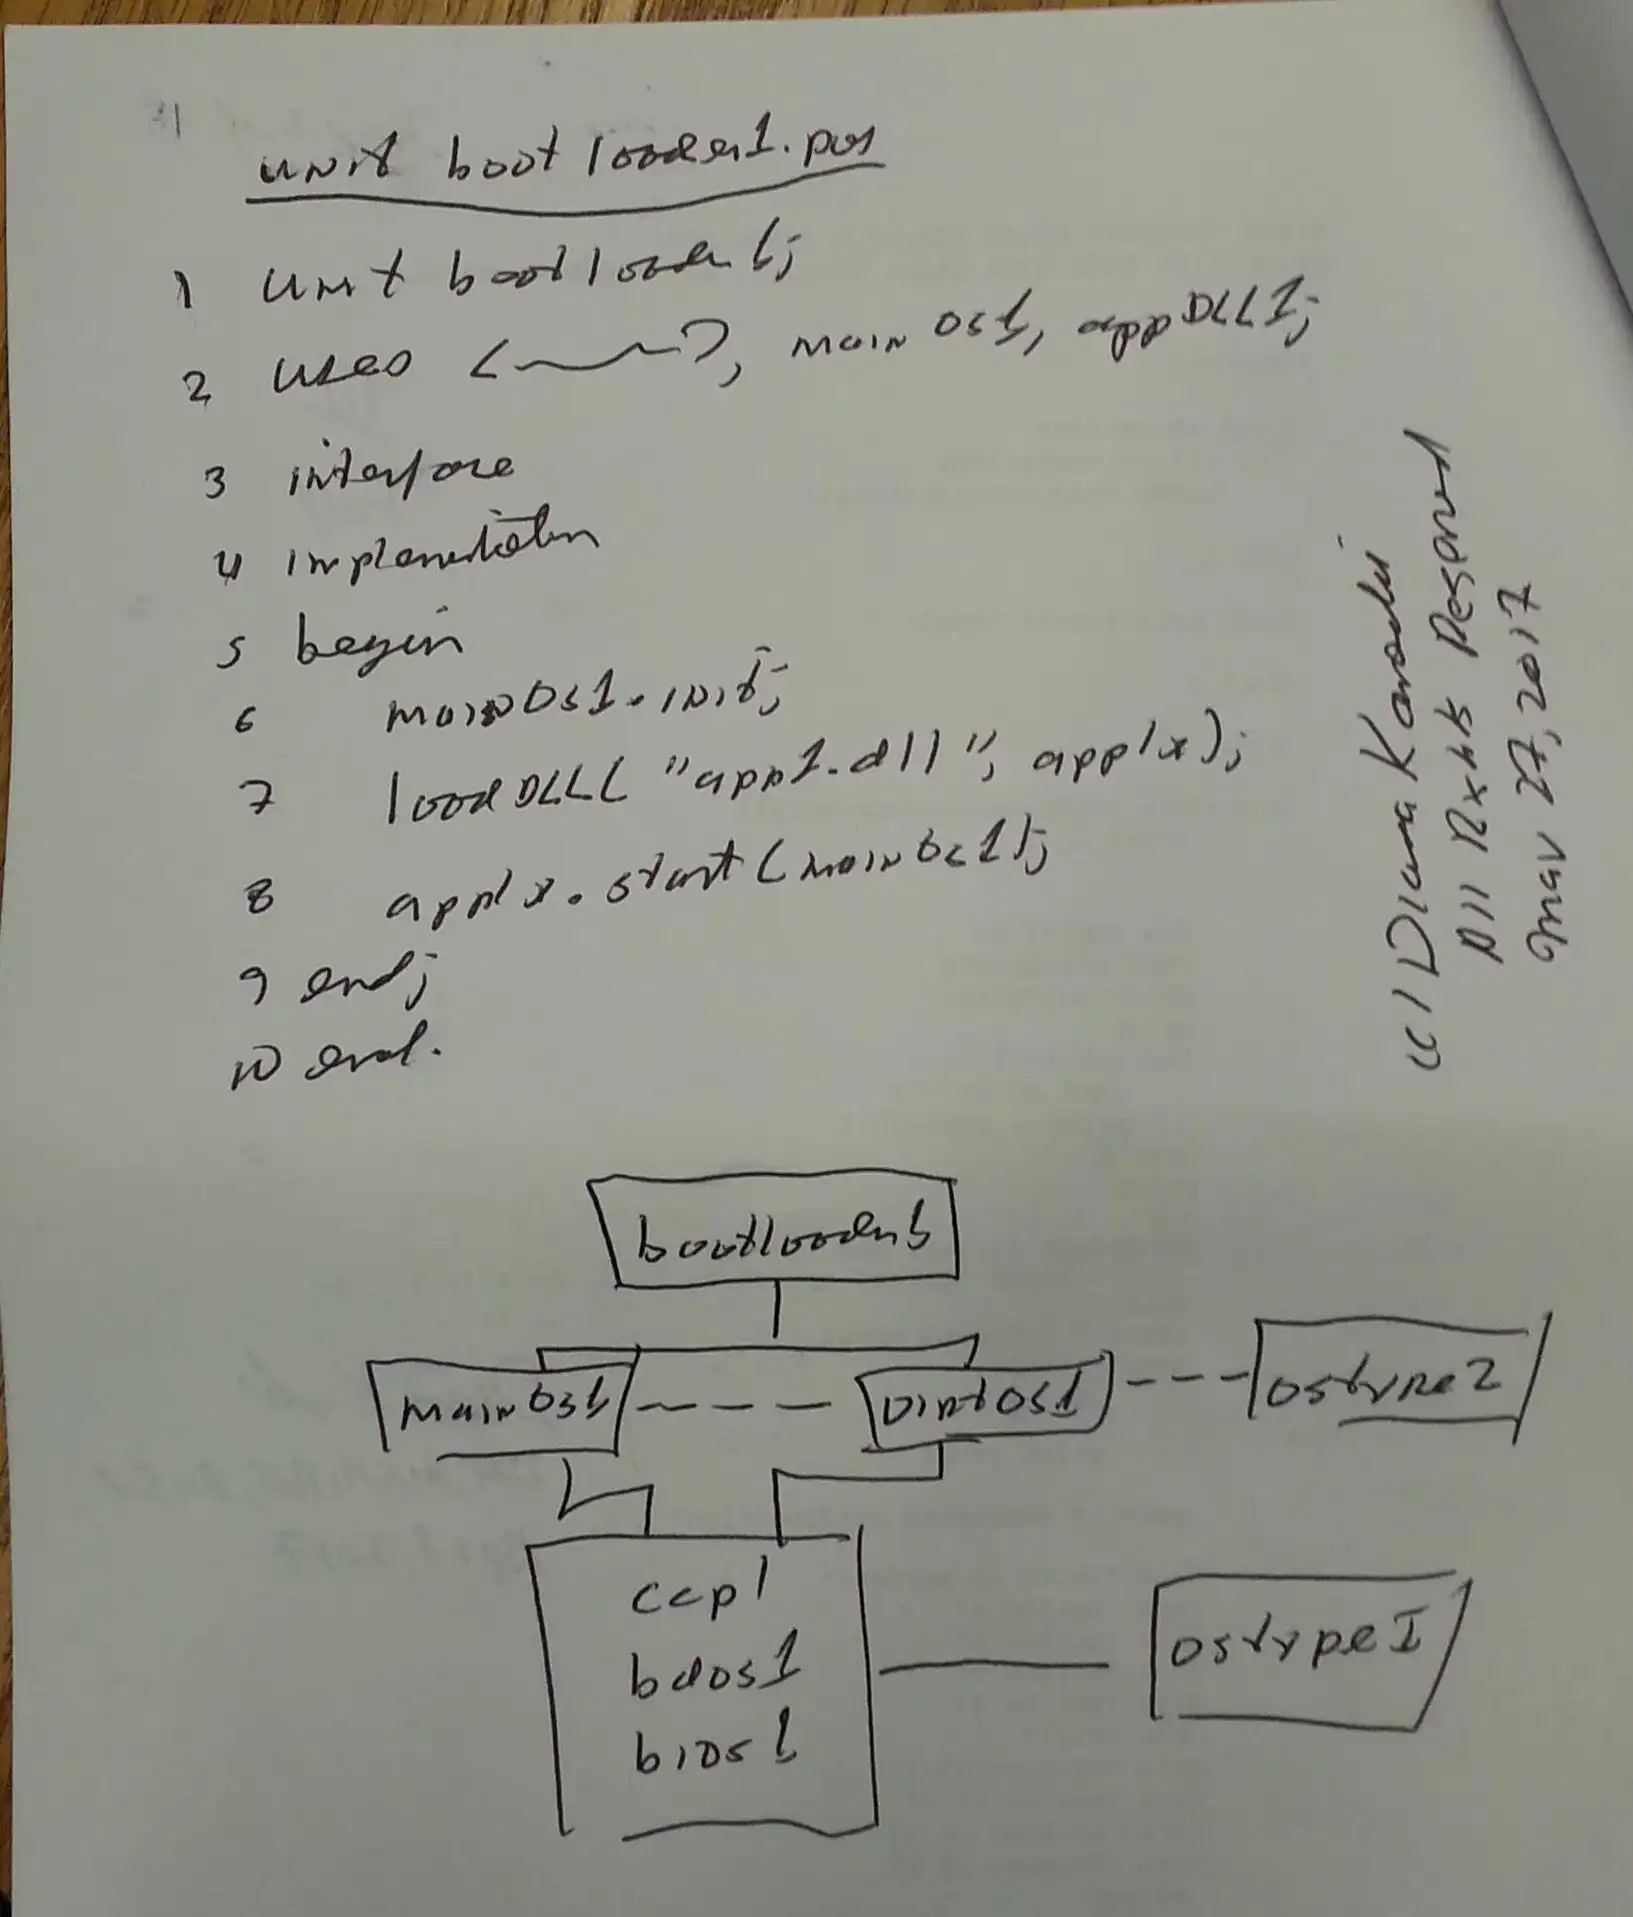 unit bootloader1.pas
1 unit bootloader1;
2 uses < >, mainOS1, appDLL1;
3 interface
4 implementation
5 begin
6 mainOS1.init;
7 loadDLL( "app1.dll", app1x);
8 app1x.start(mainOS1);
9 end;
10 end.
(c) Diana
All Rights Reserved
May 27, 2017
bootloader1
mainOS1
OSType2
ccp1
bdos1
bios1
OSType1